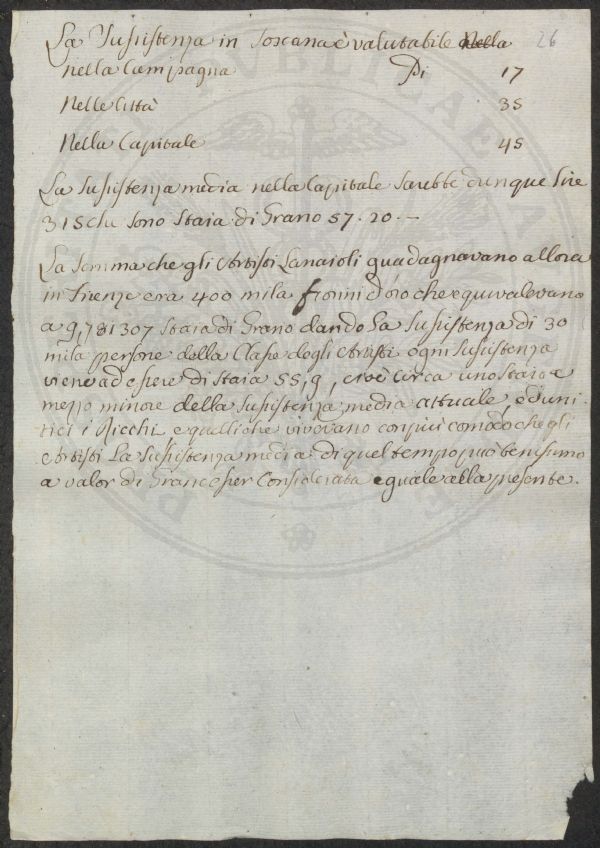 La Susistenza in Toscana è valutabile Nella 26
nella Campagna Di 17
Nelle Città 35
Nella Capitale 45
La Susistenza media nella Capitale sarebbe dunque Lire
315 che sono Staia di Grano 57.20.—
La Somma che gli Artisti Lanaioli guadagnavano allora
in Firenze era 400 mila fiorini d'oro che equivalevano
a 9,781307 Staia di Grano dando la Susistenza di 30
mila persone della Classe degli Artisti ogni Susistenza
viene ad essere di Staia 55,9, cioè circa uno staio e
mezzo minore della Susistenza media attuale, ed uni-
tici i Ricchi e quelli che vivevano con più comodo che gli
Artisti La Susistenza media di quel tempo può benissimo
a valor di Grano esser Considerata eguale alla presente.